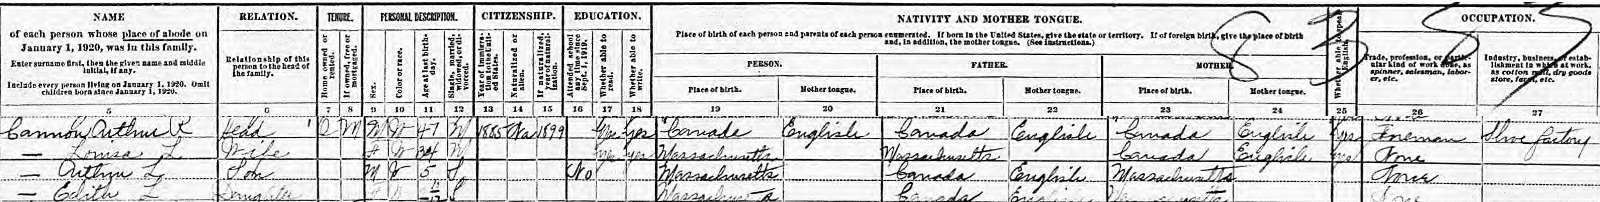 NAME
of each person whose place of abode on
January 1, 1920, was in this family.
Enter surname first, then the given name and middle
initial, if any.
Include every person living on January 1, 1920. Omit
children born since January 1, 1920.
RELATION.
Relationship of this
person to the head of
the family.
TENURE.
Home owned or
rented.
If owned, free or
mortgaged.
PERSONAL DESCRIPTION.
Sex.
Color or race.
Age at last birth-
day.
Single, married,
widowed, or di-
vorced.
CITIZENSHIP.
Year of immigra-
tion to the Unit-
ed States.
Naturalized or
alien.
If naturalized,
year of natural-
ization.
EDUCATION.
Attended school
any time since
Sept. 1, 1919.
Whether able to
read.
Whether able to
write.
NATIVITY AND MOTHER TONGUE.
Place of birth of each person and parents of each person enumerated. If born in the United States, give the state or territory. If of foreign birth, give the place of birth
and, in addition, the mother tongue. (See instructions.)
PERSON.
Place of birth. Mother tongue.
FATHER.
Place of birth. Mother tongue.
MOTHER
Place of birth. Mother tongue.
Whether able to speak
English.
8 3
OCCUPATION.
Trade, profession, or partic-
ular kind of work done, as
spinner, salesman, labor-
er, etc.
Industry, business, or estab-
lishment in which at work,
as cotton mill, dry goods
store, farm, etc.
5 6 7 8 9 10 11 12 13 14 15 16 17 18 19 20 21 22 23 24 25 26 27
Cannon, Arthur Head O M M W 47 M 1885 Na 1899 Yes Yes Canada English Canada English Canada English Yes Foreman Shoe factory
— Louisa L Wife F W 34 M Yes yes Massachusetts Massachusetts Canada English yes None
— Arthur L Son M W 5 S No Massachusetts Canada English Massachusetts None
— Edith L Daughter F W S Massachusetts Canada English Massachusetts None